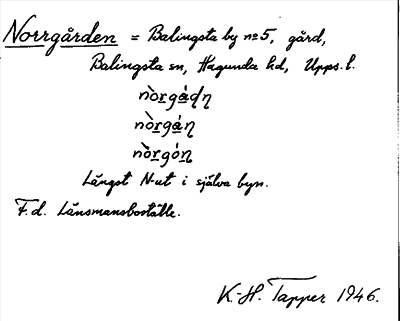 Norrgården = Balingsta by nº 5, gård,
Balingsta sn, Hagunda hd, Upps. l.
nòrgáɖɳ
nòrgáɳ
nòrgóɳ
Längst N-ut i själva byn.
F.d. Länsmansboställe.
K.-H. Tapper 1946.